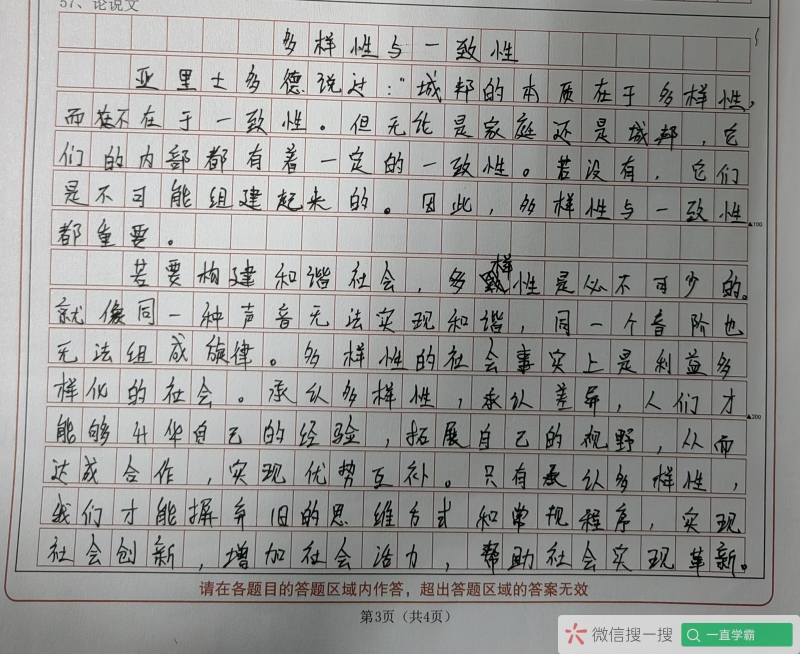 57、论说文
多样性与一致性
亚里士多德说过:“城邦的本质在于多样性,
而不在于一致性。但无论是家庭还是城邦,它
们的内部都有着一定的一致性。若没有,它们
是不可能组建起来的。因此,多样性与一致性
都重要。
▲100
若要构建和谐社会,多样性是必不可少的。
就像同一种声音无法实现和谐,同一个音阶也
无法组成旋律。多样性的社会事实上是利益多
样化的社会。承认多样性,承认差异,人们才
▲200
能够升华自己的经验,拓展自己的视野,从而
达成合作,实现优势互补。只有承认多样性,
我们才能摒弃旧的思维方式和常规程序,实现
社会创新,增加社会活力,帮助社会实现革新。
请在各题目的答题区域内作答,超出答题区域的答案无效
第3页(共4页)
微信搜一搜
一直学霸